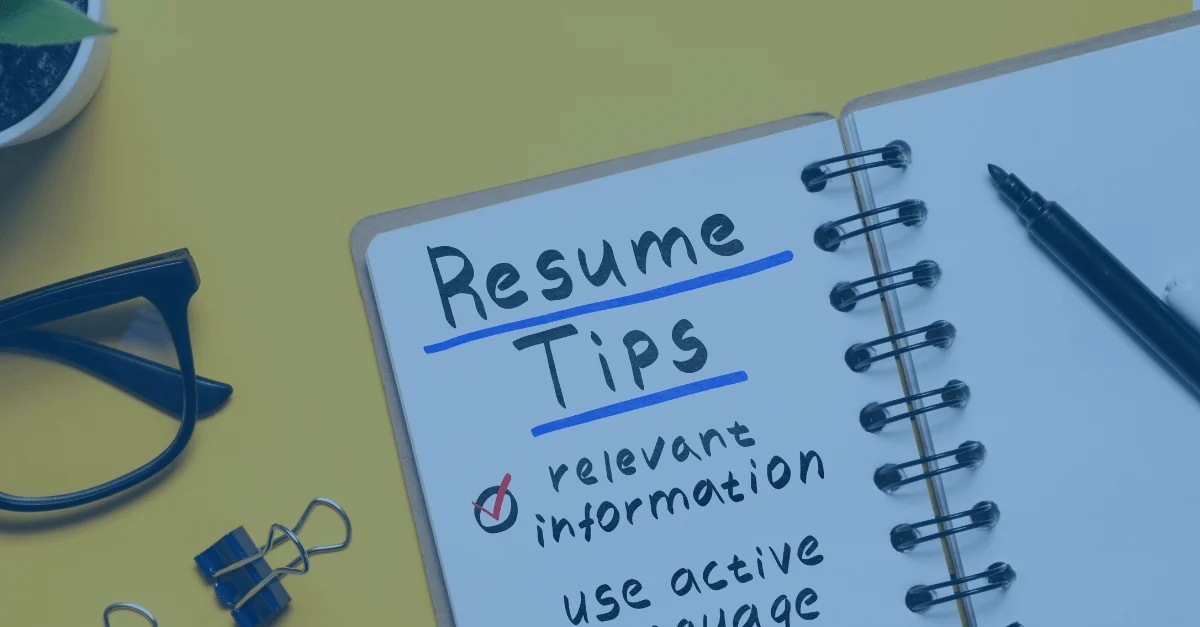 Resume
Tips
relevant
information
use active